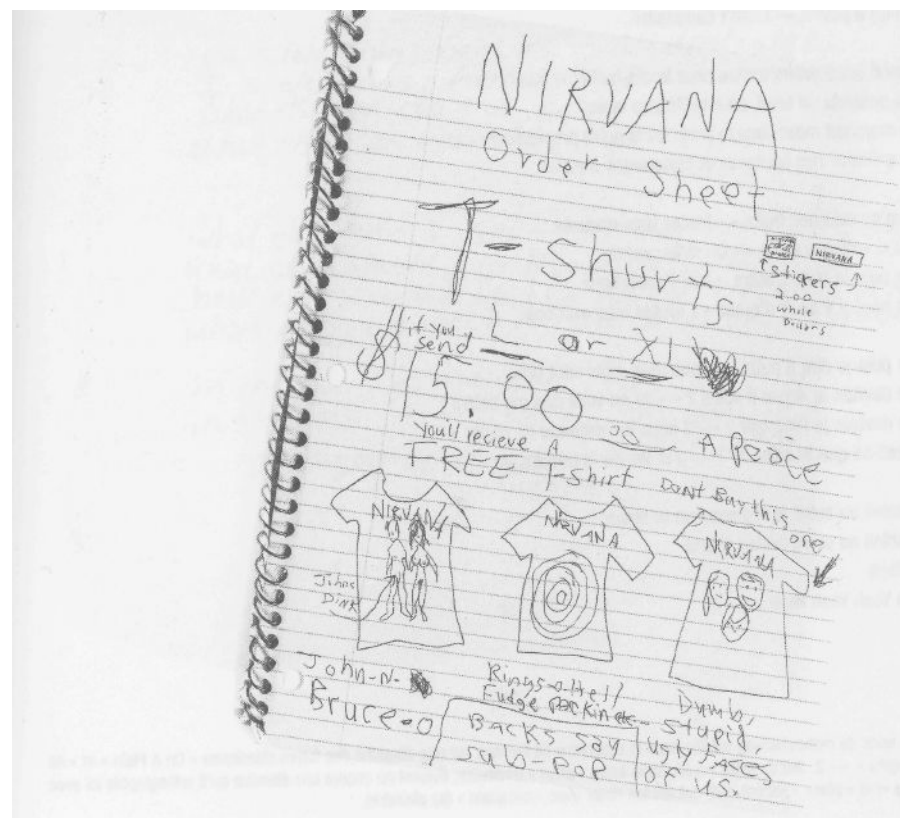 NIRVANA
Order Sheet
T-Shurts
NIRVANA
Stickers
2.00
whole
Dollars
if you
send
L or XL
$15.00
youll recieve A
A Peace
FREE T-shirt
Dont Buy this
one
NIRVANA
NIRVANA
NIRVANA
Johns
DINK
John-N-
Bruce-o
Rings-o-Hell
Fudge packin
Dumb,
stupid,
ugly FACES
of us.
BACKS say
sub-pop